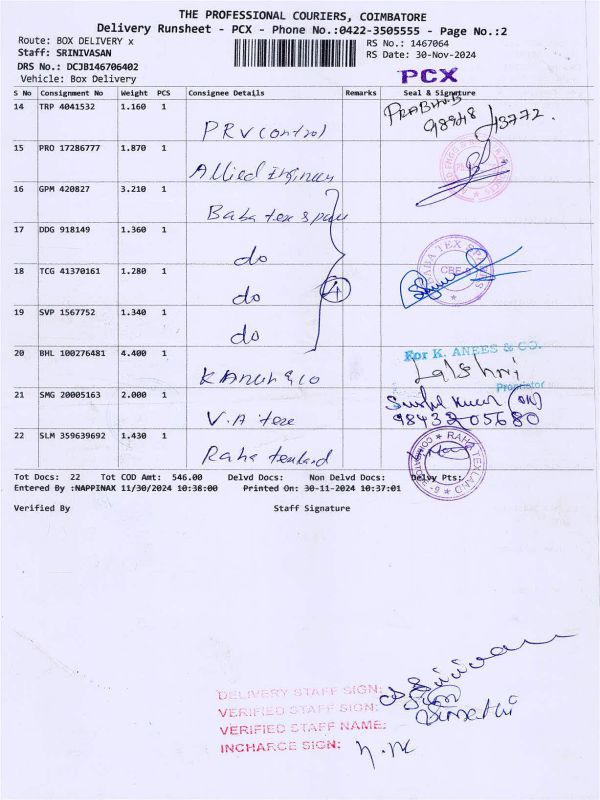 THE PROFESSIONAL COURIERS, COIMBATORE
Delivery Runsheet - PCX - Phone No.:0422-3505555 - Page No.:2
Route: BOX DELIVERY x
RS No.: 1467064
Staff: SRINIVASAN
RS Date: 30-Nov-2024
DRS No.: DCJB146706402
PCX
Vehicle: Box Delivery
S No Consignment No Weight PCS Consignee Details Remarks Seal & Signature
14 TRP 4041532 1.160 1
PRV Control
15 PRO 17286777 1.870 1
Allied
16 GPM 420827 3.210 1
Baba tex
17 DDG 918149 1.360 1
do
BABA TEX
CBE
18 TCG 41370161 1.280 1
do
4
19 SVP 1567752 1.340 1
do
20 BHL 100276481 4.400 1
For K. ANEES & CO.
Proprietor
21 SMG 20005163 2.000 1
98432 05680
22 SLM 359639692 1.430 1
Raha texland
RAHA TEXLAND
COIMBATORE
Tot Docs: 22 Tot COD Amt: 546.00 Delvd Docs: Non Delvd Docs: Delvy Pts:
Entered By :NAPPINAX 11/30/2024 10:38:00 Printed On: 30-11-2024 10:37:01
Verified By Staff Signature
DELIVERY STAFF SIGN:
VERIFIED STAFF SIGN:
VERIFIED STAFF NAME:
INCHARGE SIGN: